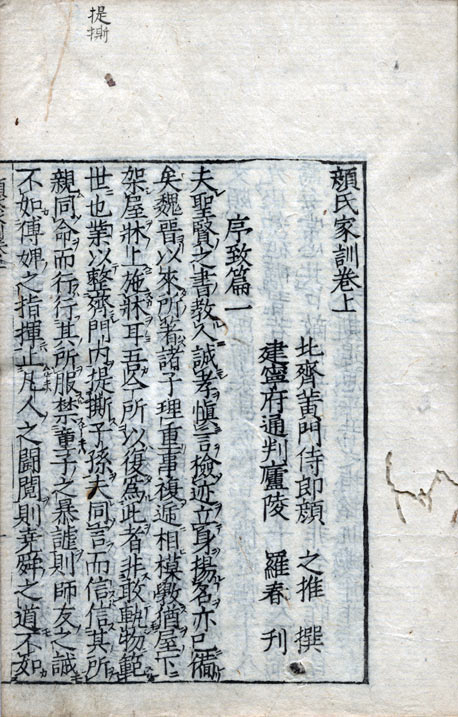 提
撕
顏氏家訓卷上
北齊黃門侍郎顏 之推 撰
建寧府通判廬陵 羅春 刊
序致篇一
夫聖賢之書教人誠孝慎言檢迹立身揚名亦已備
矣魏晉以來所著諸子理重事複遞相模斆猶屋下
架屋牀上施牀耳吾今所以復為此者非敢軌物範
世也業以整齊門內提撕子孫夫同言而信信其所
親同命而行行其所服禁童子之暴謔則師友之誡
不如傅婢之指揮止凡人之鬪鬩則堯舜之道不如